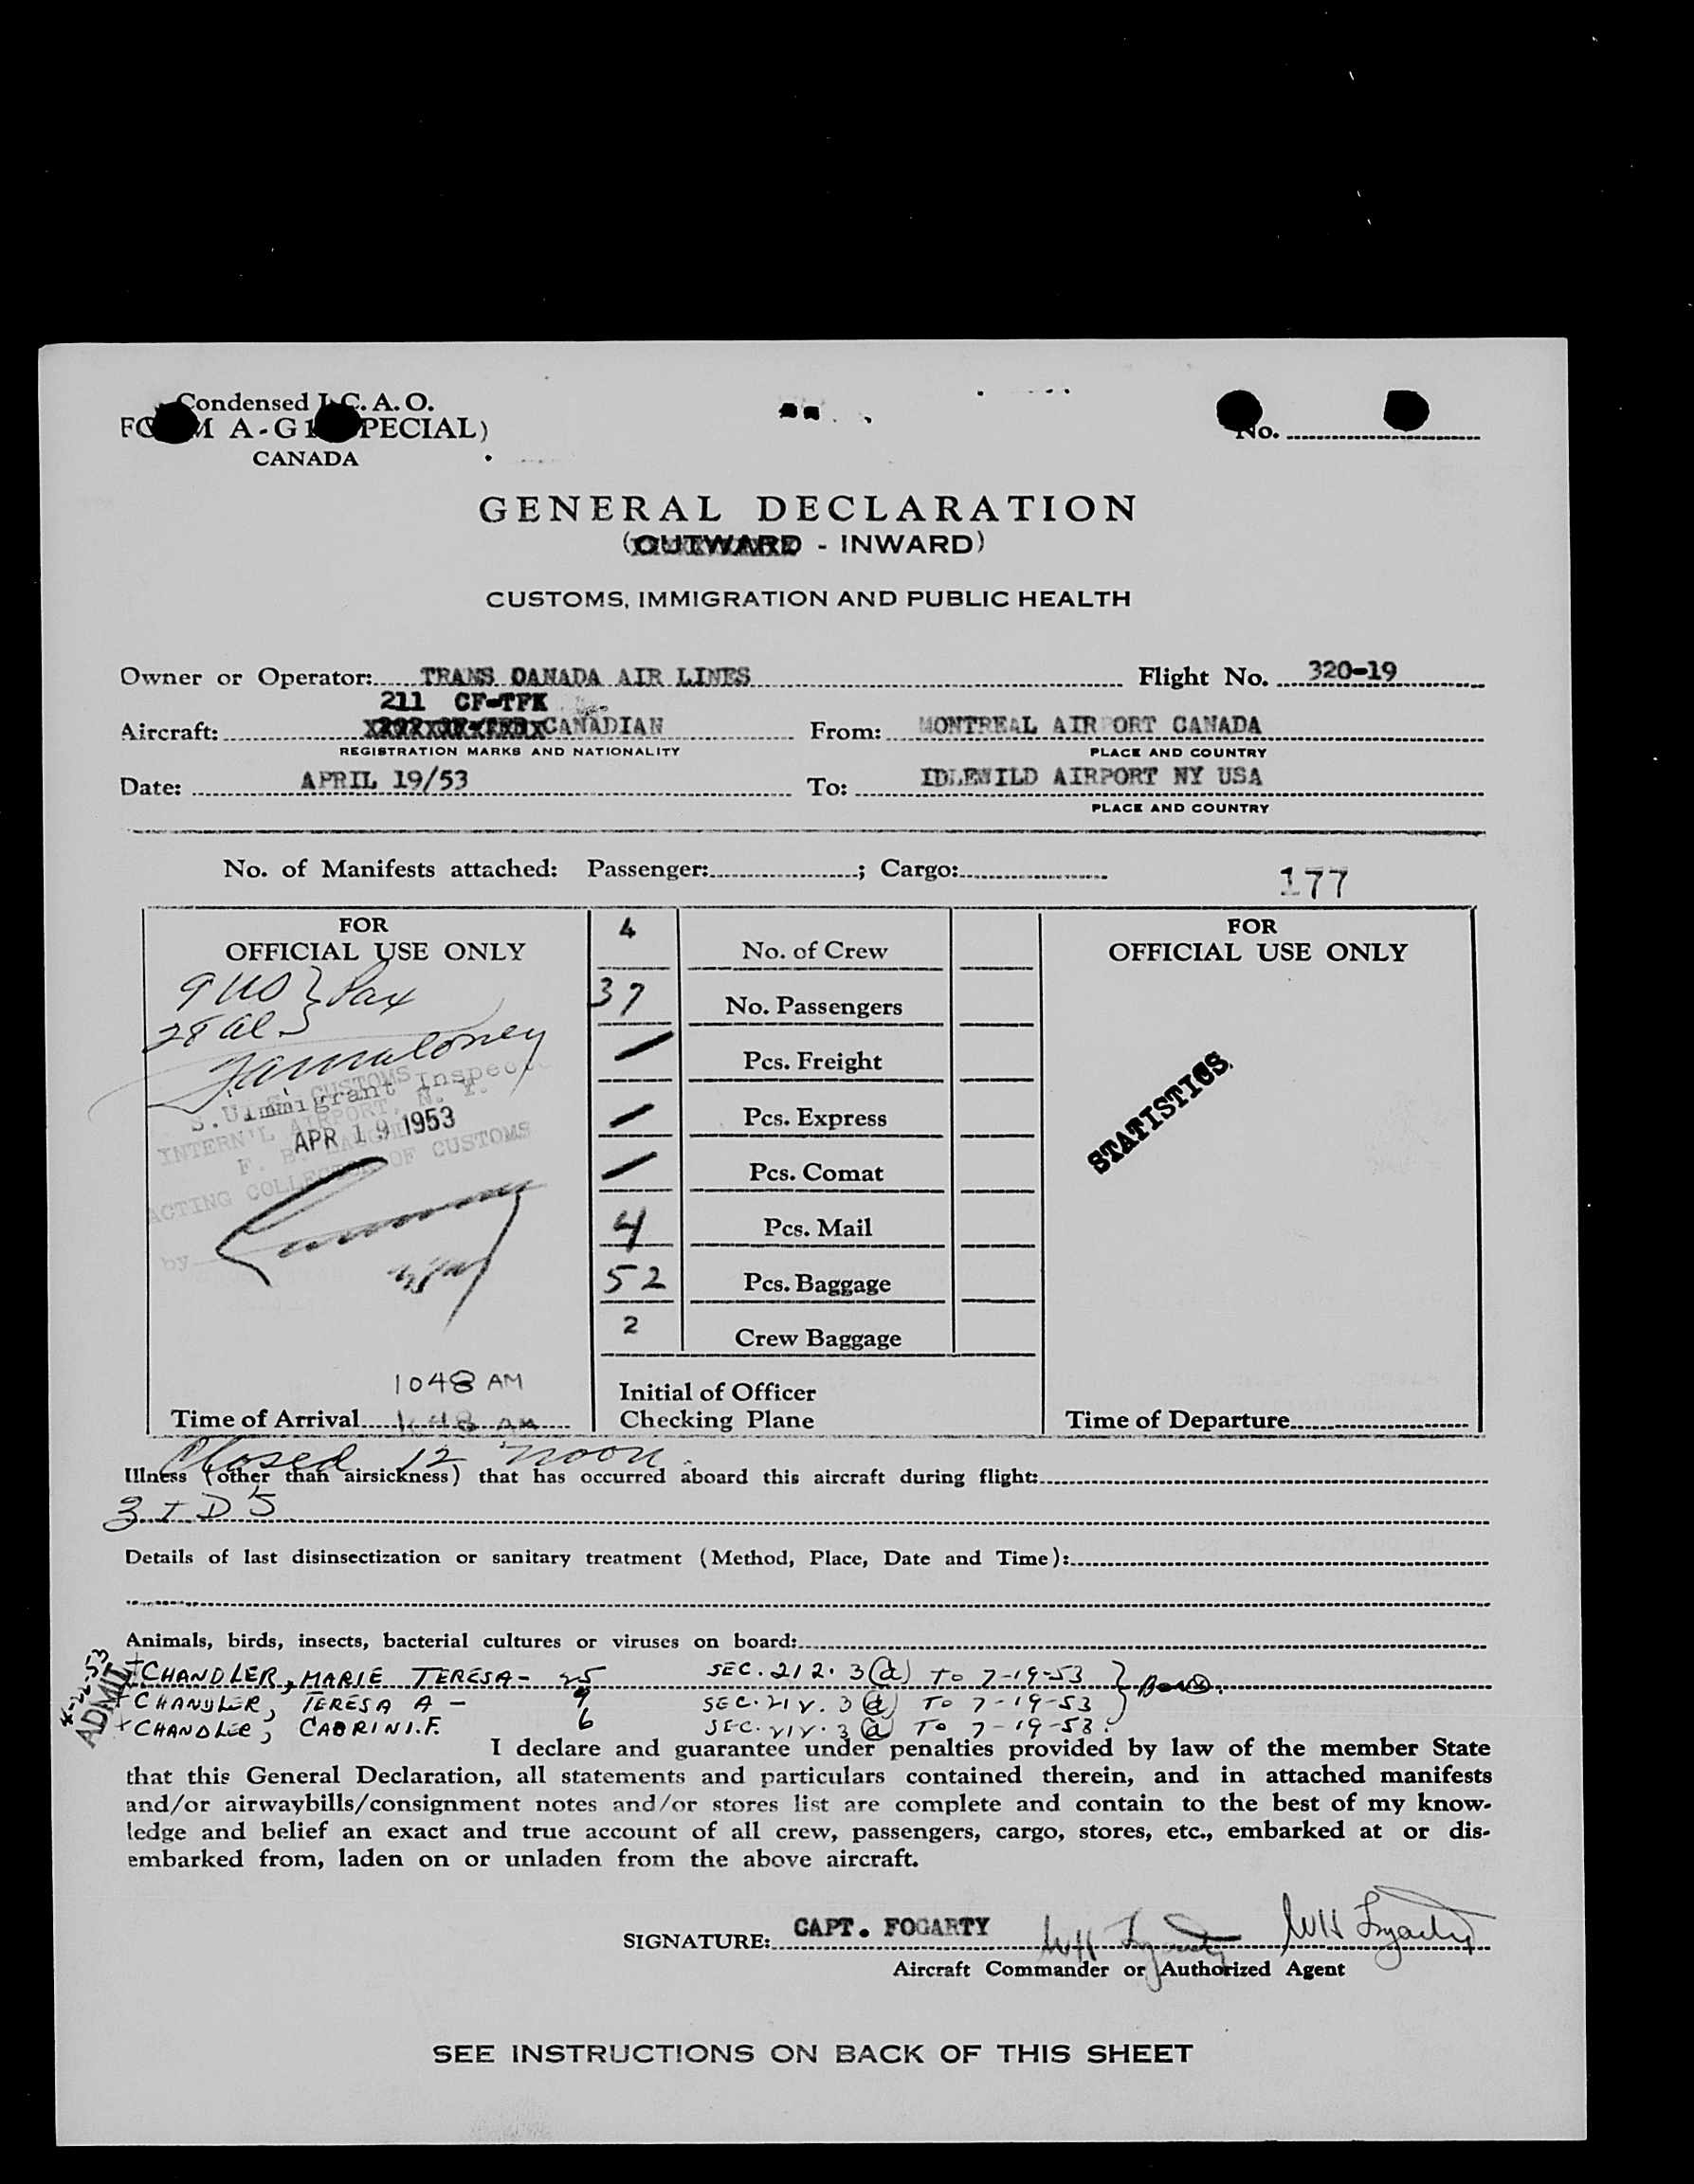 Condensed I.C.A.O.
FORM A-G1 (SPECIAL)
CANADA
No.
GENERAL DECLARATION
(OUTWARD - INWARD)
CUSTOMS, IMMIGRATION AND PUBLIC HEALTH
Owner or Operator: TRANS CANADA AIR LINES Flight No. 320-19
211 CF-TFK
Aircraft: CANADIAN From: MONTREAL AIRPORT CANADA
REGISTRATION MARKS AND NATIONALITY PLACE AND COUNTRY
Date: APRIL 19/53 To: IDLEWILD AIRPORT NY USA
PLACE AND COUNTRY
No. of Manifests attached: Passenger: ; Cargo: 177
FOR OFFICIAL USE ONLY
9 US } Pax
28 al
Immigrant Inspector
U.S. CUSTOMS
INTERN'L AIRPORT, N. Y.
APR 19 1953
ACTING COLLECTOR OF CUSTOMS
by
1048 AM
Time of Arrival 1048 AM
4 No. of Crew
37 No. Passengers
/ Pcs. Freight
/ Pcs. Express
/ Pcs. Comat
4 Pcs. Mail
52 Pcs. Baggage
2 Crew Baggage
Initial of Officer
Checking Plane
FOR
OFFICIAL USE ONLY
STATISTICS
Time of Departure
Closed 12 noon
Illness (other than airsickness) that has occurred aboard this aircraft during flight:
3 I D 5
Details of last disinsectization or sanitary treatment (Method, Place, Date and Time):
Animals, birds, insects, bacterial cultures or viruses on board:
ADMIT
CHANDLER, MARIE TERESA - 25 SEC. 212. 3(d) TO 7-19-53
CHANDLER, TERESA A - 9 SEC. 212. 3(d) TO 7-19-53
CHANDLER, CABRINI. F. 6 SEC. 212. 3(d) TO 7-19-53
I declare and guarantee under penalties provided by law of the member State
that this General Declaration, all statements and particulars contained therein, and in attached manifests
and/or airwaybills/consignment notes and/or stores list are complete and contain to the best of my know-
ledge and belief an exact and true account of all crew, passengers, cargo, stores, etc., embarked at or dis-
embarked from, laden on or unladen from the above aircraft.
SIGNATURE: CAPT. FOGARTY WH Fogarty WH Fogarty
Aircraft Commander or Authorized Agent
SEE INSTRUCTIONS ON BACK OF THIS SHEET